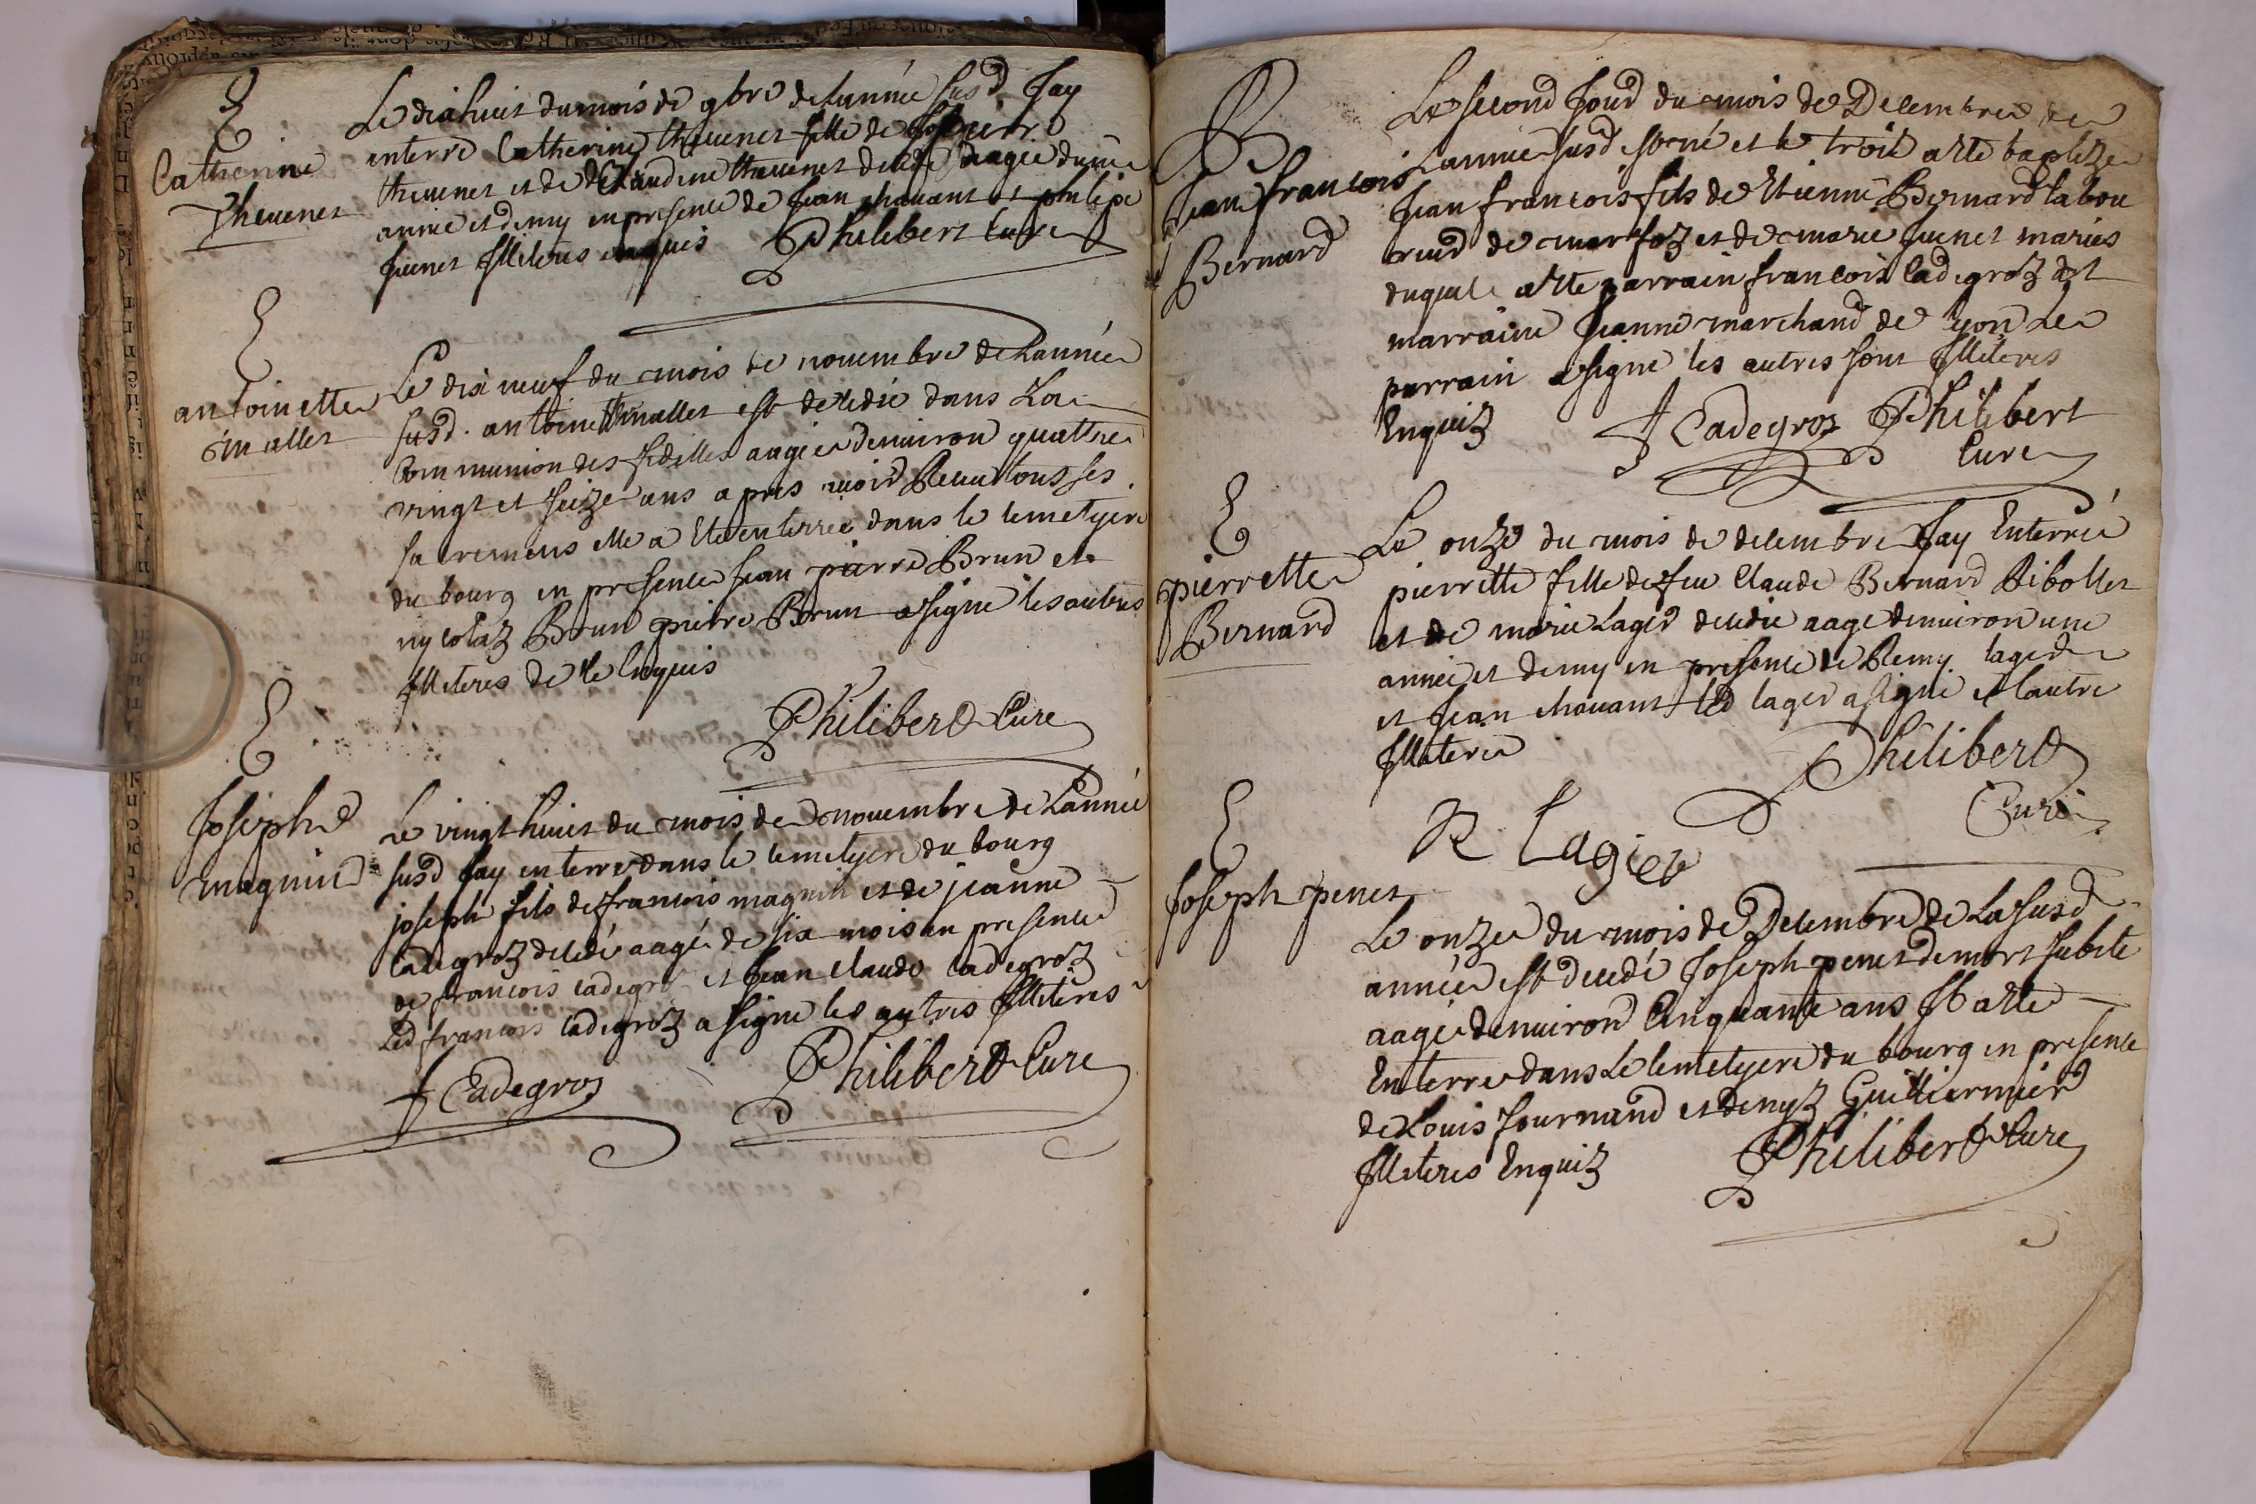 E
Catherine
Thevenet
Le dixhuit du mois de 9bre de lannée susd. Jay
enterre Catherine thevenet fille de pierre
thevenet et de Claudine thevenet agée dune
année et demy en presence de Jean chavant et philipe
Juenet Illiteres enquis Philibert Cure
E
antoinette
malles
Le dix neuf du mois de novembre de Lannée
susd. antoinette est decedée dans La
Communion des fidelles aagée denviron quattre
vingt et seize ans apres avoir Receu tous ses
sacremens elle a ete enterrée dans le cemetyere
du bourg en presence Jean pierre Brun et
nycolaz Brun pierre Brun a signé les autres
Illiteres de ce Enquis
Philibert Cure
E
Joseph
magnin
Le vingt huict du mois de novembre de Lannée
susd Jay enterre dans le cemetyere du bourg
joseph fils de francois magnin et de jeanne
cadegroz decedé aagé de six mois en presence
de francois cadegroz et Jean Claude cadegroz
Led francois cadegroz a signe les autres Illiteres
f Cadegroz Philibert Cure
B
Jean francois
Bernard
Le second Jour du mois de Decembre de
Lannée susd est né et le trois a ete baptize
Jean francois fils de Etienne Bernard labou
reur de et de marie Juenet mariés
duquel a ete parrain francois Cadegroz et
marraine Jeanne marchand de Lyon Le
parrain a signe les autres sont Illiteres
Enquiz f Cadegroz Philibert
Cure
E
pierrette
Bernard
Le onze du mois de decembre Jay Enterrée
pierrette fille de feu Claude Bernard Ribollet
et de marie Lager decedée aage denviron une
année et demy en presence de Remy lager
et Jean chavant led lager a signé et lautre
Illitere Philibert
Cure
R Lagier
E
Joseph penet
Le onze du mois de Decembre de La susd
année est decedé Joseph penet de mort subite
aagé denviron Cinquante ans Il a ete
Enterre dans Le cemetyere du bourg en presence
de Louis Journand et denyz Guilliermier
Illiteres Enquiz Philibert Cure